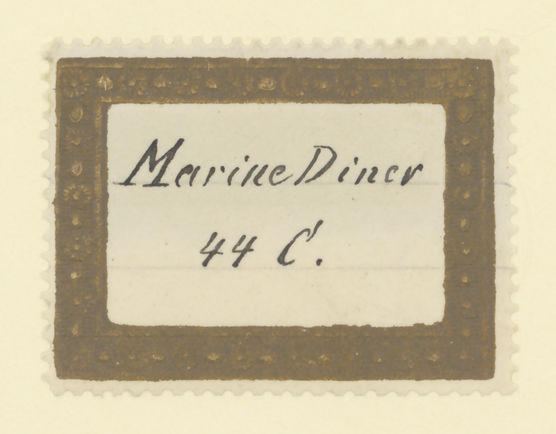 Marine Diner
44 C.